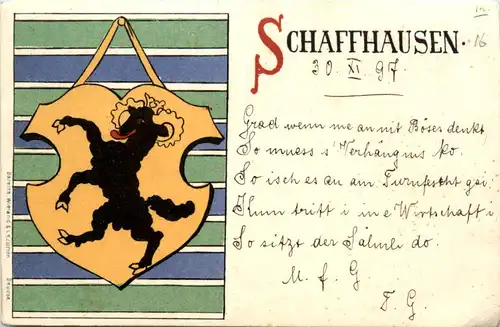 SCHAFFHAUSEN.
16
30. XI. 97.
Grad wenn me an nit Böses denkt,
So muess s' Verhängnis ko.
So isch es au am Turnfescht gsi
Chum tritt i in e Wirtschaft i
So sitzt der Sälmli do.
M. f. G
F. G.